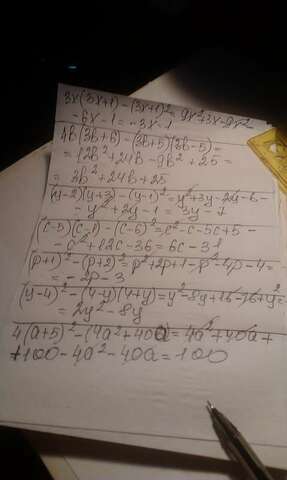 3x(3x+1)-(3x+1)²=9x²+3x-9x²
-6x-1=-3x-1
4b(3b+6)-(3b+5)(3b-5)=
=12b²+24b-9b²+25=
=3b²+24b+25
(y-2)(y+3)-(y-1)²=y²+3y-2y-6-
-y²+2y-1=3y-7
(c-5)(c-1)-(c-6)²=c²-c-5c+5-
-c²+12c-36=6c-31
(p+1)²-(p+2)²=p²+2p+1-p²-4p-4=
=-2p-3
(y-4)²-(4-y)(4+y)=y²-8y+16-16+y²=
=2y²-8y
4(a+5)²-(4a²+40a)=4a²+40a+
+100-4a²-40a=100